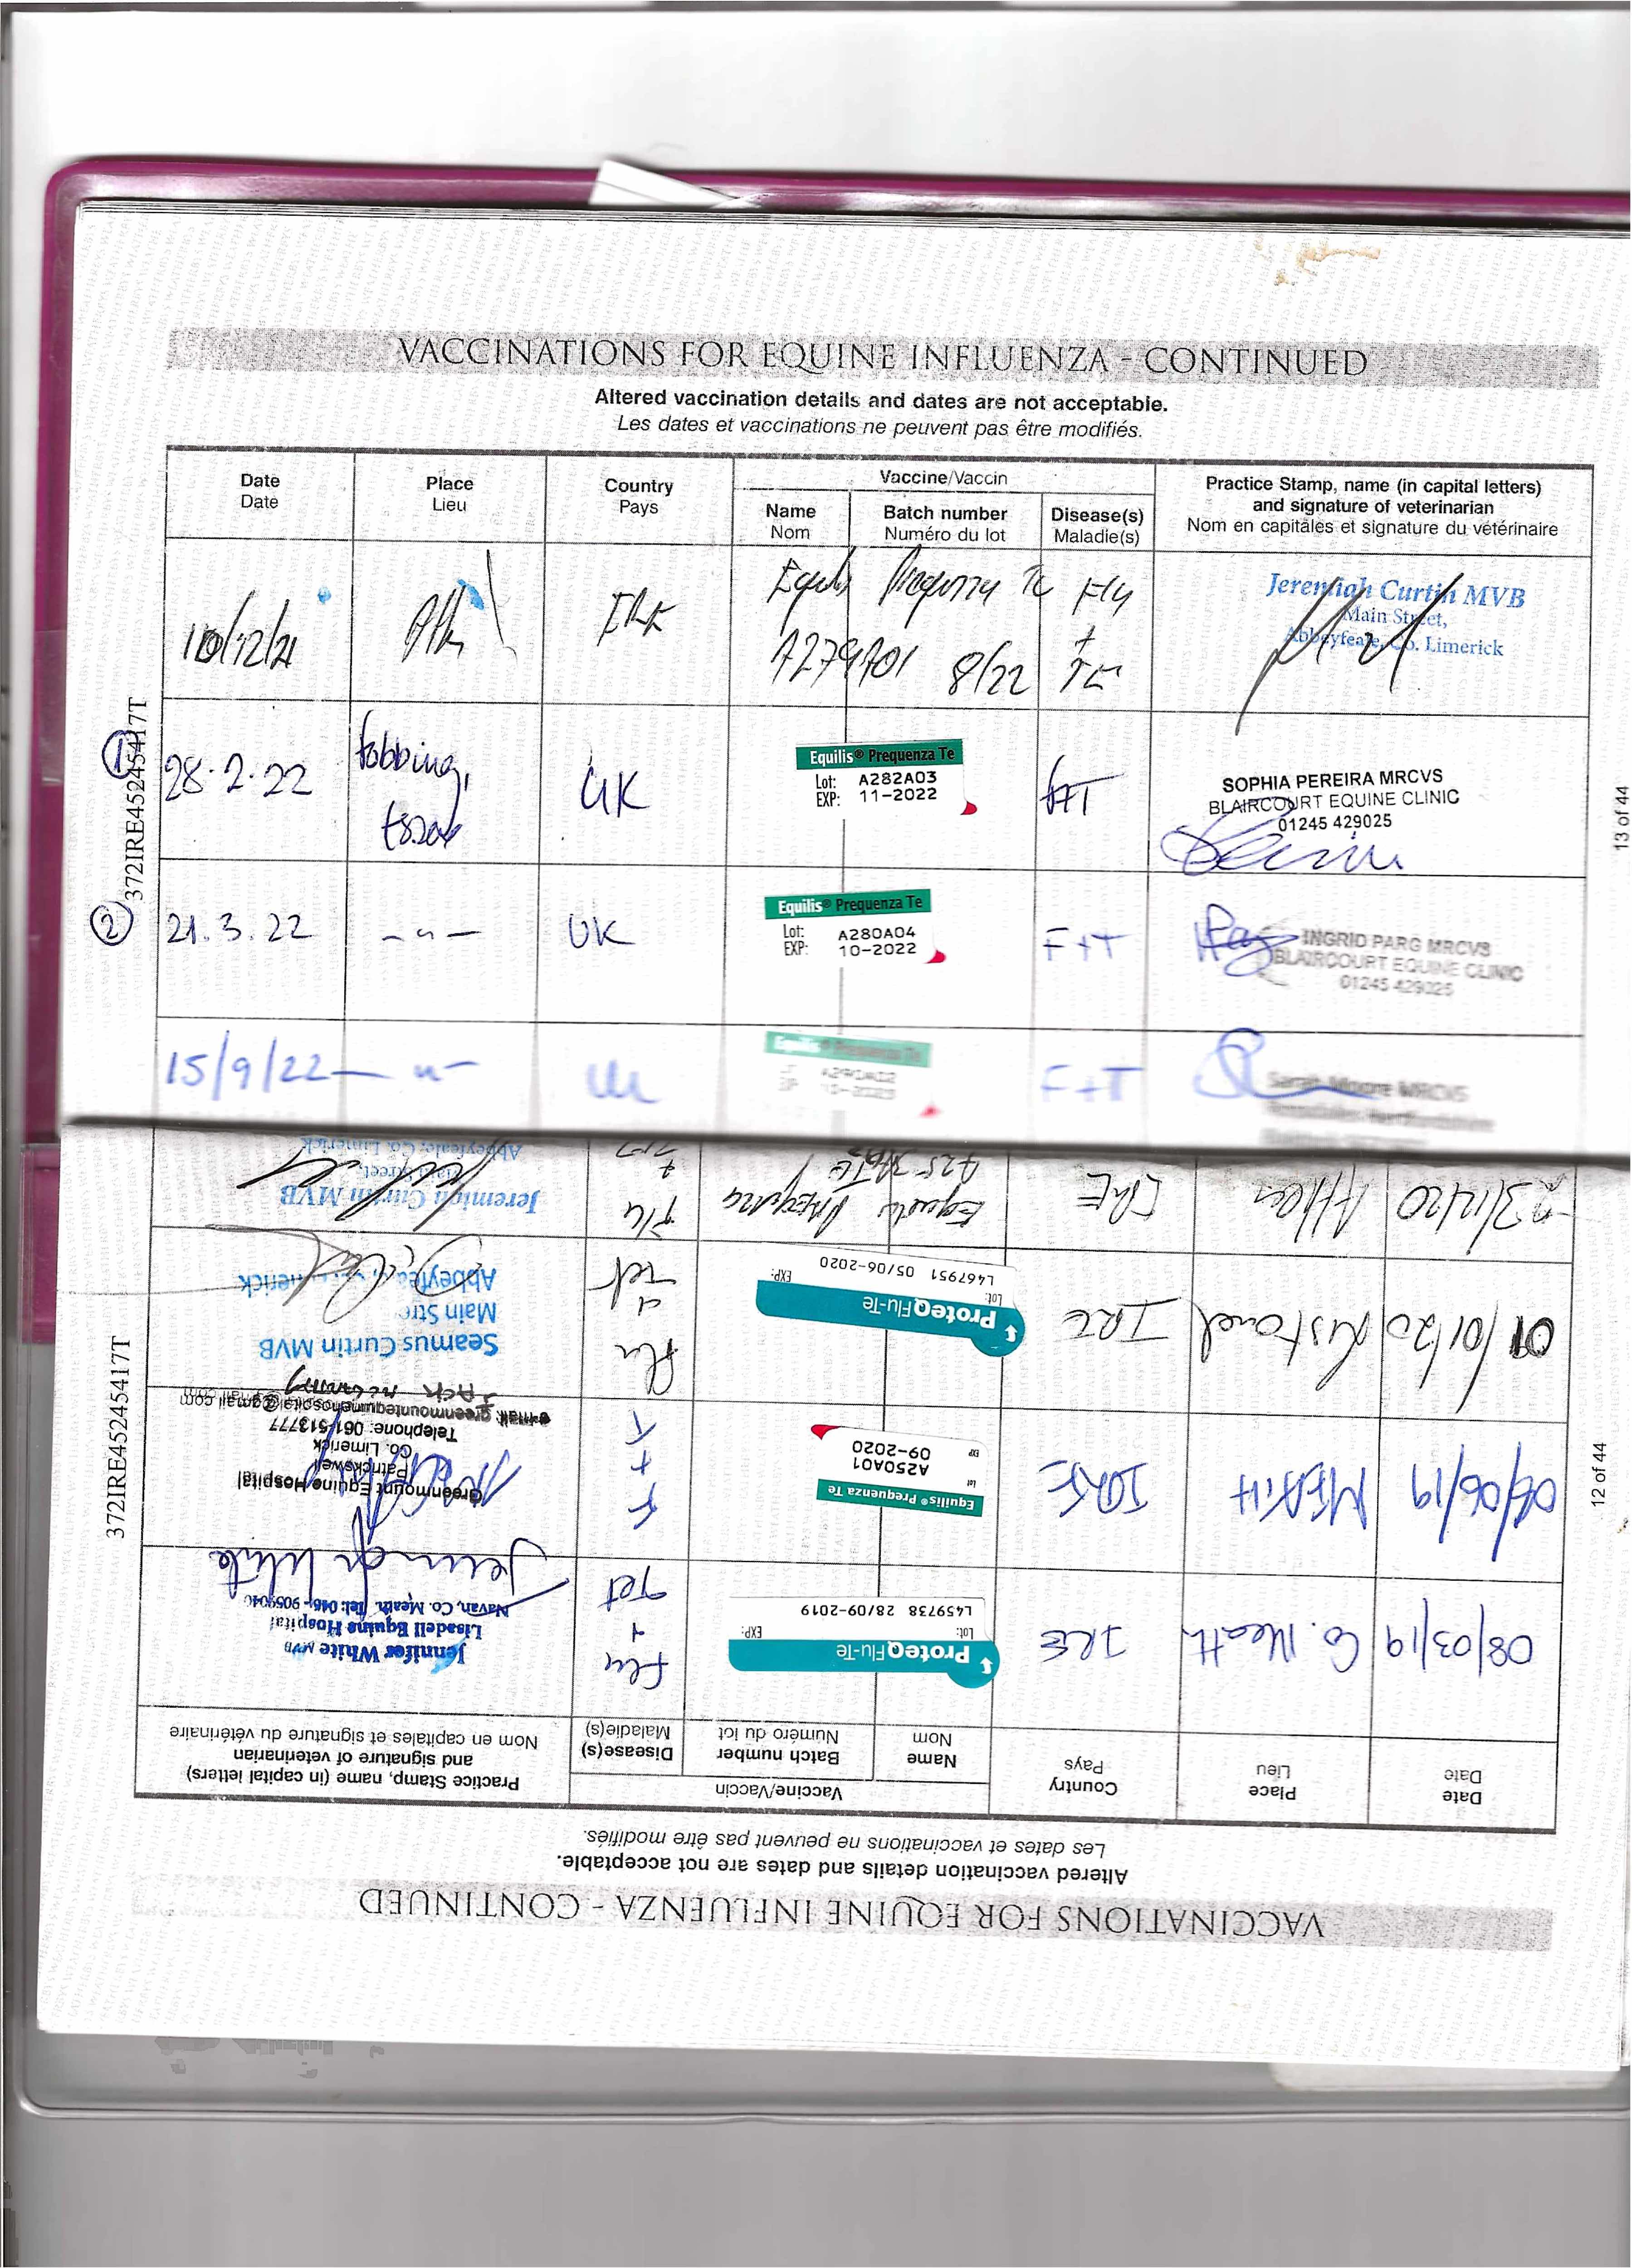 VACCINATIONS FOR EQUINE INFLUENZA - CONTINUED
Altered vaccination details and dates are not acceptable.
Les dates et vaccinations ne peuvent pas être modifiés.
Date
Date
Place
Lieu
Country
Pays
Vaccine/Vaccin
Name
Nom
Batch number
Numéro du lot
Disease(s)
Maladie(s)
Practice Stamp, name (in capital letters)
and signature of veterinarian
Nom en capitales et signature du vétérinaire
10/12/21
Equilis Prequenza Te
A279A01 8/22
Flu
+
TE
Jeremiah Curtin MVB
Main Street,
Abbeyfeale, Co. Limerick
372IRE45245417T
13 of 44
①
28.2.22
fobbing,
Essex
UK
Equilis® Prequenza Te
Lot: A282A03
EXP: 11-2022
F+T
SOPHIA PEREIRA MRCVS
BLAIRCOURT EQUINE CLINIC
01245 429025
②
21.3.22
-"-
UK
Equilis® Prequenza Te
Lot: A280A04
EXP: 10-2022
F+T
INGRID PARG MRCVS
BLAIRCOURT EQUINE CLINIC
01245 429025
15/9/22
-"-
UK
Equilis® Prequenza Te
F+T
Sarah Moore MRCVS
VACCINATIONS FOR EQUINE INFLUENZA - CONTINUED
Altered vaccination details and dates are not acceptable.
Les dates et vaccinations ne peuvent pas être modifiés.
Date
Date
Place
Lieu
Country
Pays
Vaccine/Vaccin
Name
Nom
Batch number
Numéro du lot
Disease(s)
Maladie(s)
Practice Stamp, name (in capital letters)
and signature of veterinarian
Nom en capitales et signature du vétérinaire
08/03/19
Co. Meath
IRE
ProteqFlu-Te
Lot: EXP:
L459738 28/09-2019
Flu
+
Tet
Jennifer White MVB
Lissadell Equine Hospital
Navan, Co. Meath. Tel: 046-
Jennifer White
06/06/19
MEATH
IRE
Equilis® Prequenza Te
Lot A250A01
EXP 09-2020
F
+
T
Greenmount Equine Hospital
Patrickswell
Co. Limerick
Telephone: 061-513777
e-mail: greenmountequinehospital@gmail.com
01/01/20
Listowel
IRE
ProteqFlu-Te
Lot: EXP:
L467951 05/06-2020
Flu
+
Tet
Seamus Curtin MVB
Main Str
Abbeyfea Limerick
23/12/20
IRE
Equilis Prequenza
Flu
+
Jeremiah Curtin MVB
Street,
Abbeyfeale, Co. Limerick
372IRE45245417T
12 of 44